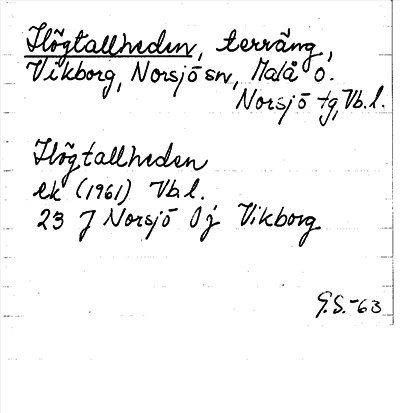 Högtallheden, terräng,
Vikborg, Norsjö sn, Malå o.
Norsjö tg, Vb.l.
Högtallheden
ek (1961) Vb.l.
23 J Norsjö 0j Vikborg
G.S.-63